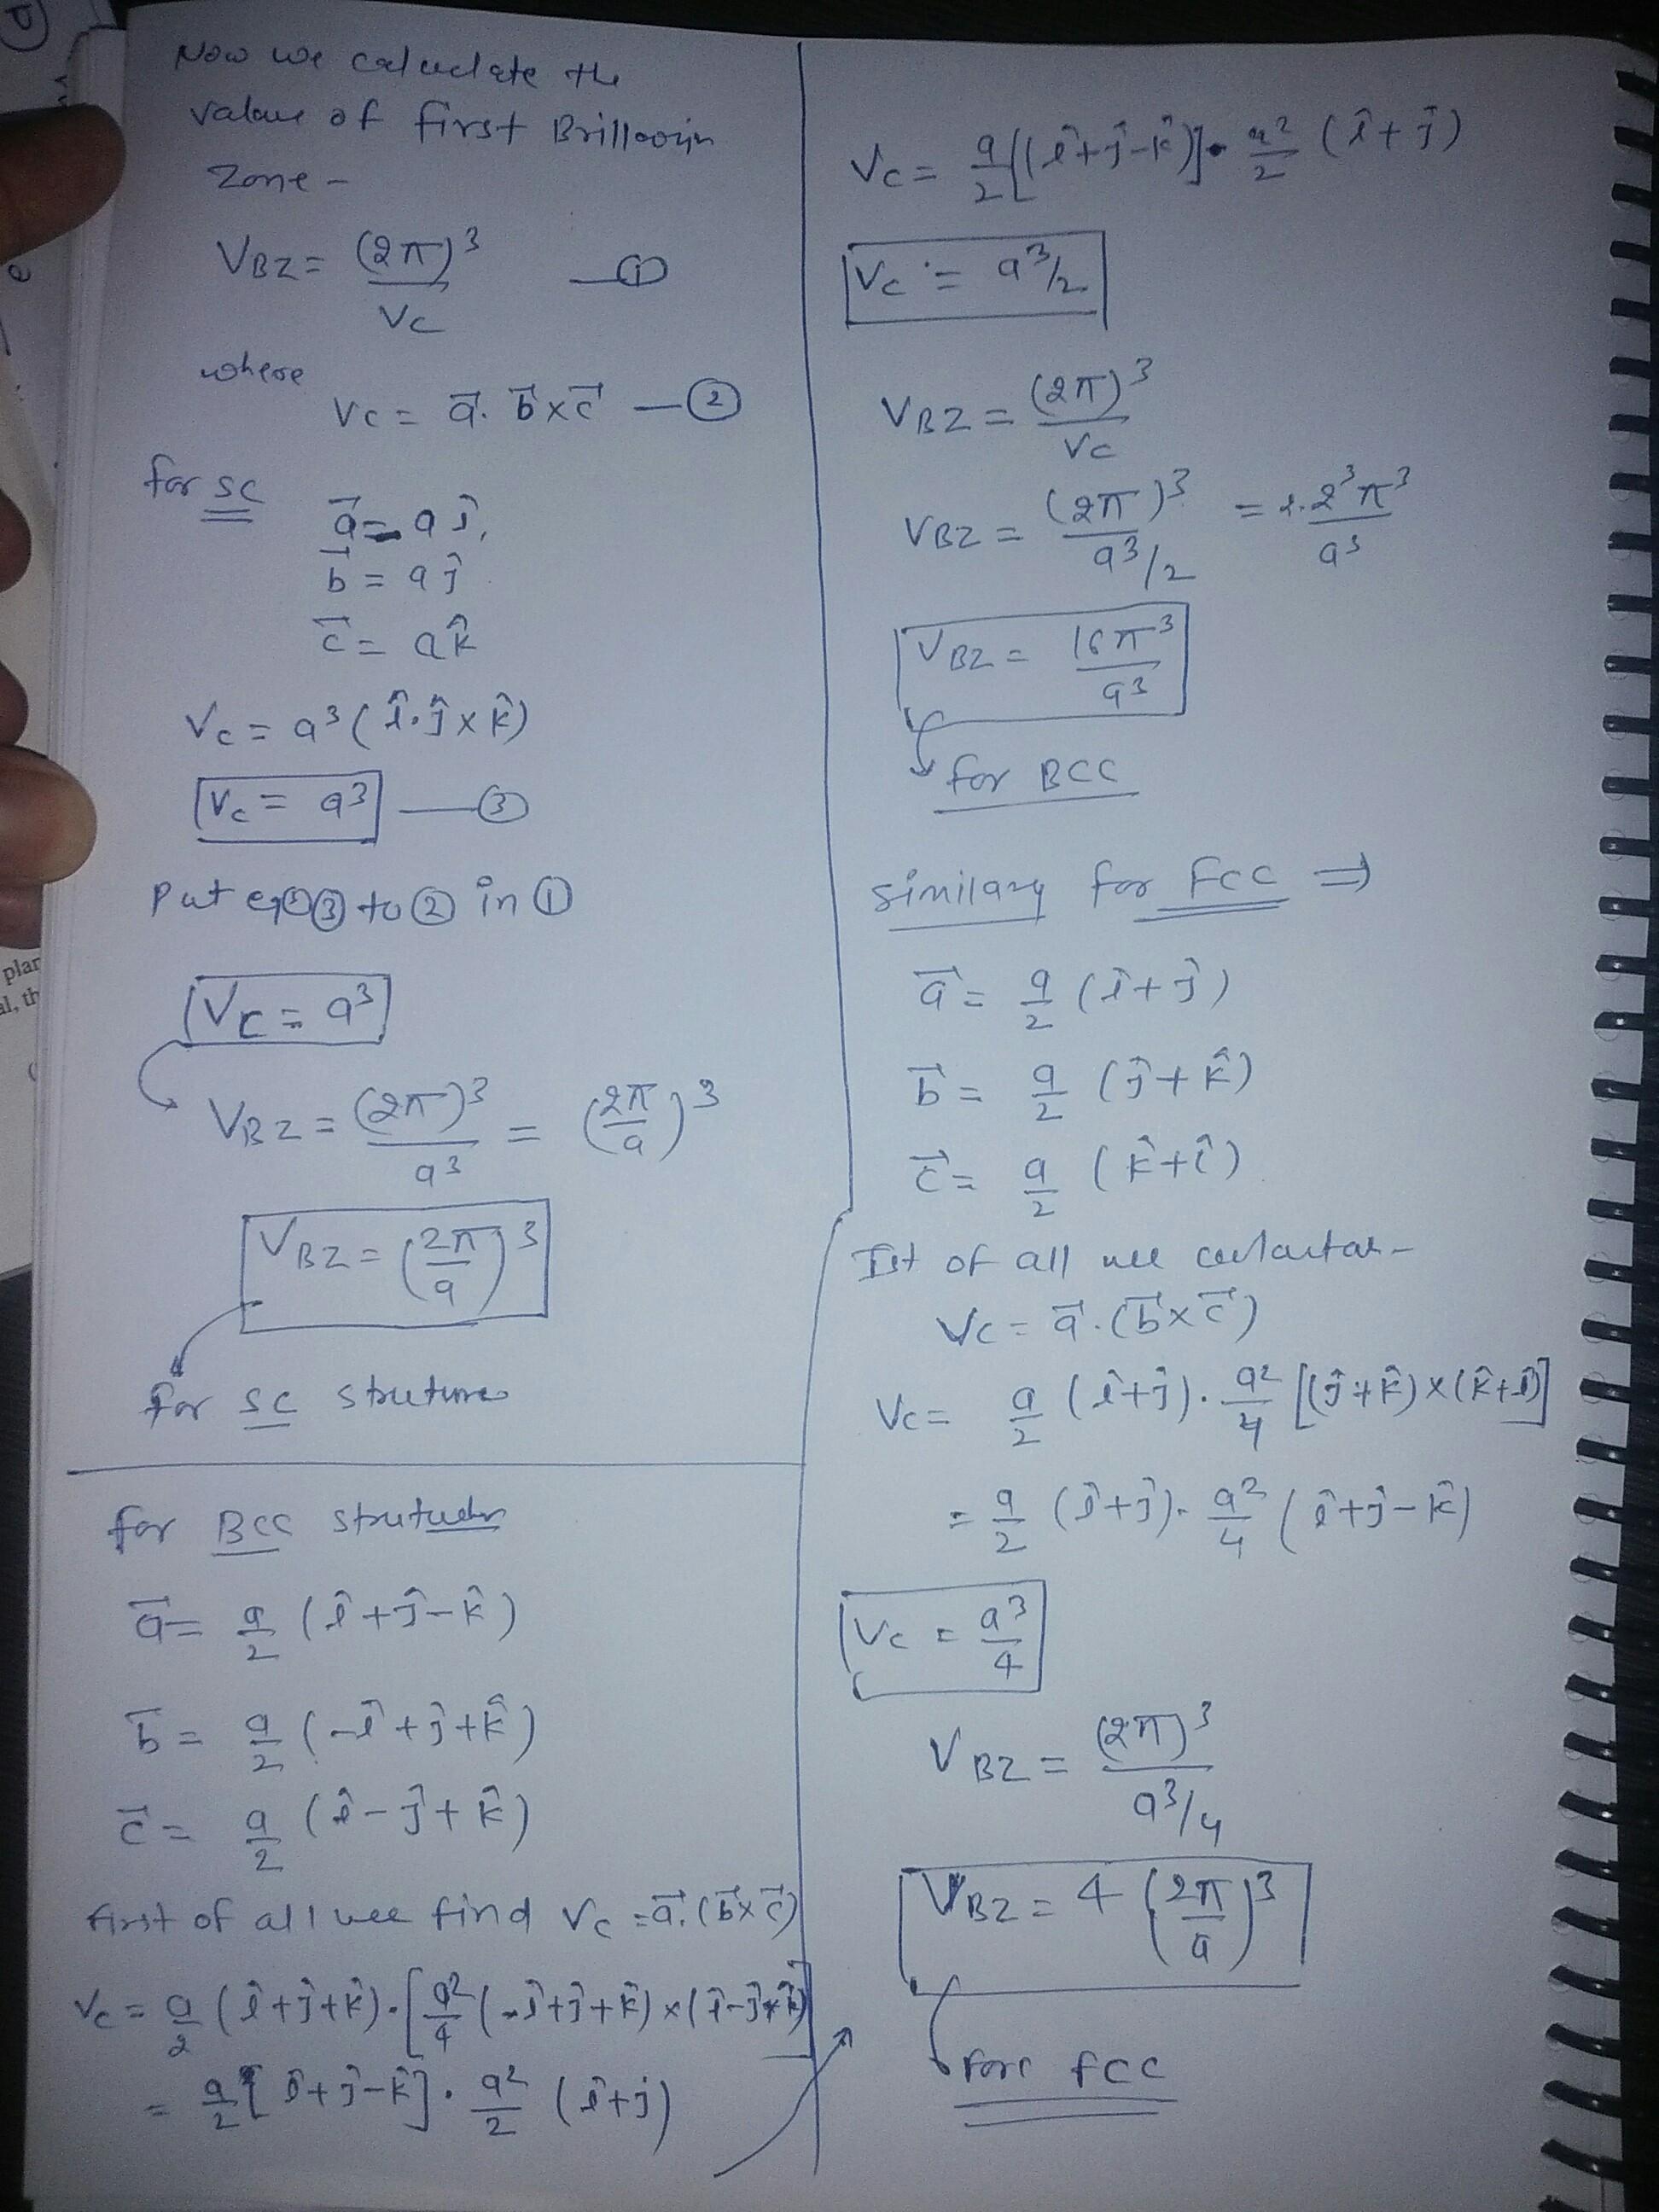 Now we calculate the
value of first Brillouin
Zone -
VBZ = (2π)³ / Vc —①
where
Vc = a⃗. b⃗ × c⃗ —②
for SC
a⃗ = a î,
b⃗ = a ĵ
c⃗ = a k̂
Vc = a³ ( î. ĵ × k̂)
Vc = a³ —③
Put eqⁿ ③ to ② in ①
Vc = a³
VBZ = (2π)³ / a³ = (2π/a)³
VBZ = (2π/a)³
for SC
for BCC
a⃗ = a/2 (î + ĵ - k̂)
b⃗ = a/2 (-î + ĵ + k̂)
c⃗ = a/2 (î - ĵ + k̂)
First of all we find Vc = a⃗. (b⃗ × c⃗)
Vc = a/2 (î + ĵ + k̂) . [a²/4 (-î + ĵ + k̂) × (î - ĵ + k̂)]
= a/2 [î + ĵ - k̂] . a²/2 (î + ĵ)
Vc = a/2 [(î + ĵ - k̂)] . a²/2 (î + ĵ)
Vc = a³/2
VBZ = (2π)³ / Vc
VBZ = (2π)³ / a³/2 = 2.2³π³ / a³
VBZ = 16π³ / a³
for BCC
similary for FCC ⇒
a⃗ = a/2 (î + ĵ)
b⃗ = a/2 (ĵ + k̂)
c⃗ = a/2 (k̂ + î)
Ist of all we
Vc = a⃗. (b⃗ × c⃗)
Vc = a/2 (î + ĵ) . a²/4 [(ĵ + k̂) × (k̂ + î)]
= a/2 (î + ĵ) . a²/4 (î + ĵ - k̂)
Vc = a³/4
VBZ = (2π)³ / a³/4
VBZ = 4 (2π/a)³
for FCC
plan
al, th